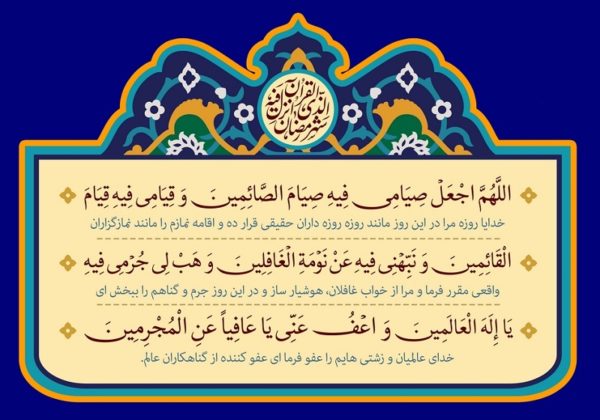 شهر رمضان الذی انزل فیه القرآن
اللَّهُمَّ اجْعَلْ صِیَامِی فِیهِ صِیَامَ الصَّائِمِینَ وَ قِیَامِی فِیهِ قِیَامَ
خدایا روزه مرا در این روز مانند روزه روزه داران حقیقی قرار ده و اقامه نمازم را مانند نمازگزاران
الْقَائِمِینَ وَ نَبِّهْنِی فِیهِ عَنْ نَوْمَةِ الْغَافِلِینَ وَ هَبْ لِی جُرْمِی فِیهِ
واقعی مقرر فرما و مرا از خواب غافلان، هوشیار ساز و در این روز جرم و گناهم را ببخش ای
یَا إِلَهَ الْعَالَمِینَ وَ اعْفُ عَنِّی یَا عَافِیاً عَنِ الْمُجْرِمِینَ
خدای عالمیان و زشتی هایم را عفو فرما ای عفو کننده از گناهکاران عالم.